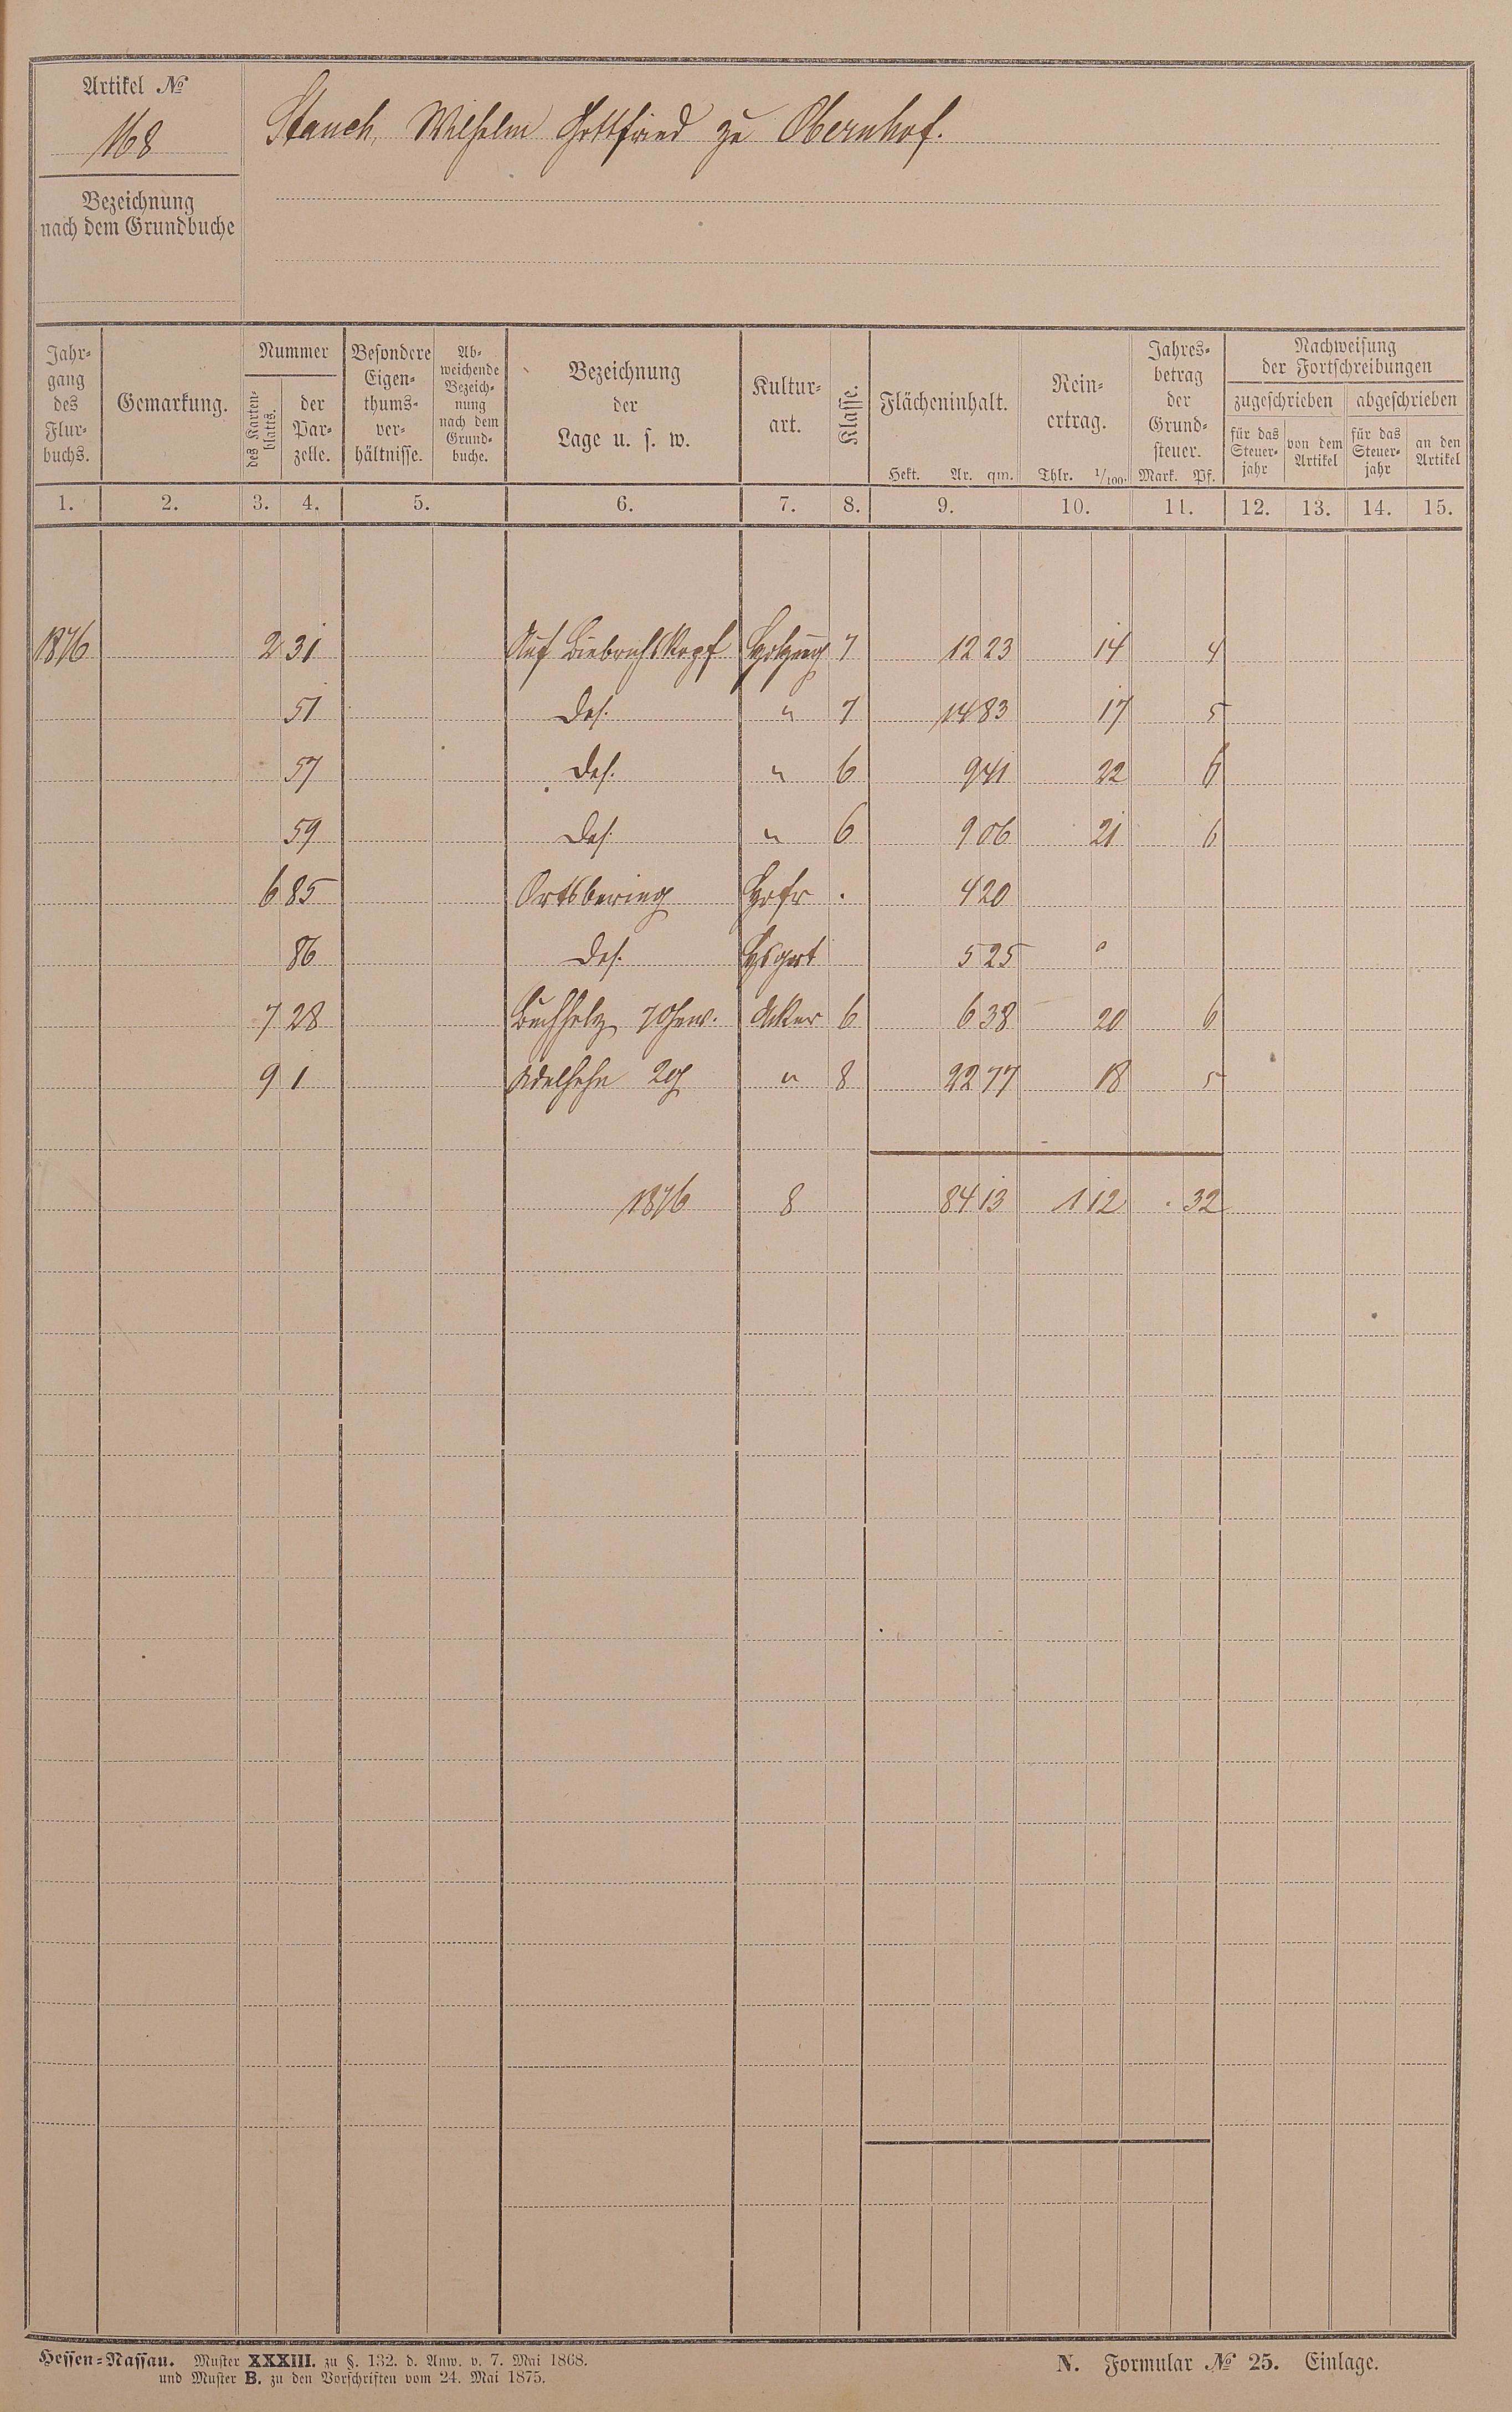 Artikel №
168
Stauch, Wilhelm Gottfried zu Obernhof.
Bezeichnung
nach dem Grundbuche
Jahr-
gang
des
Flur-
buchs.
Gemarkung.
Nummer
des Karten-
blatts.
der
Par-
zelle.
Besondere
Eigen-
thums-
ver-
hältnisse.
Ab-
weichende
Bezeich-
nung
nach dem
Grund-
buche.
Bezeichnung
der
Lage u. s. w.
Kultur-
art.
Klasse.
Flächeninhalt.
Hekt. Ar. qm.
Rein-
ertrag.
Thlr. 1/100.
Jahres-
betrag
der
Grund-
steuer.
Mark. Pf.
Nachweisung
der Fortschreibungen
zugeschrieben abgeschrieben
für das
Steuer-
jahr
von dem
Artikel
für das
Steuer-
jahr
an den
Artikel
1. 2. 3. 4. 5. 6. 7. 8. 9. 10. 11. 12. 13. 14. 15.
1876 2 31 Auf Biebrichskopf Holzung 7 12 23 14 4
51 das. " 7 14 83 17 5
57 das. " 6 9 41 22 6
59 das. " 6 9 06 21 6
6 85 Ortsbering Hofr . 4 20
86 das. Hsgart 5 25
7 28 Buchholz 7 Gew. Acker 6 6 38 20 6
9 1 2 " 8 22 77 18 5
1876 8 84 13 1 12 . 32
Hessen-Nassau. Muster XXXIII. zu §. 132. d. Anw. v. 7. Mai 1868.
und Muster B. zu den Vorschriften vom 24. Mai 1875.
N. Formular № 25. Einlage.